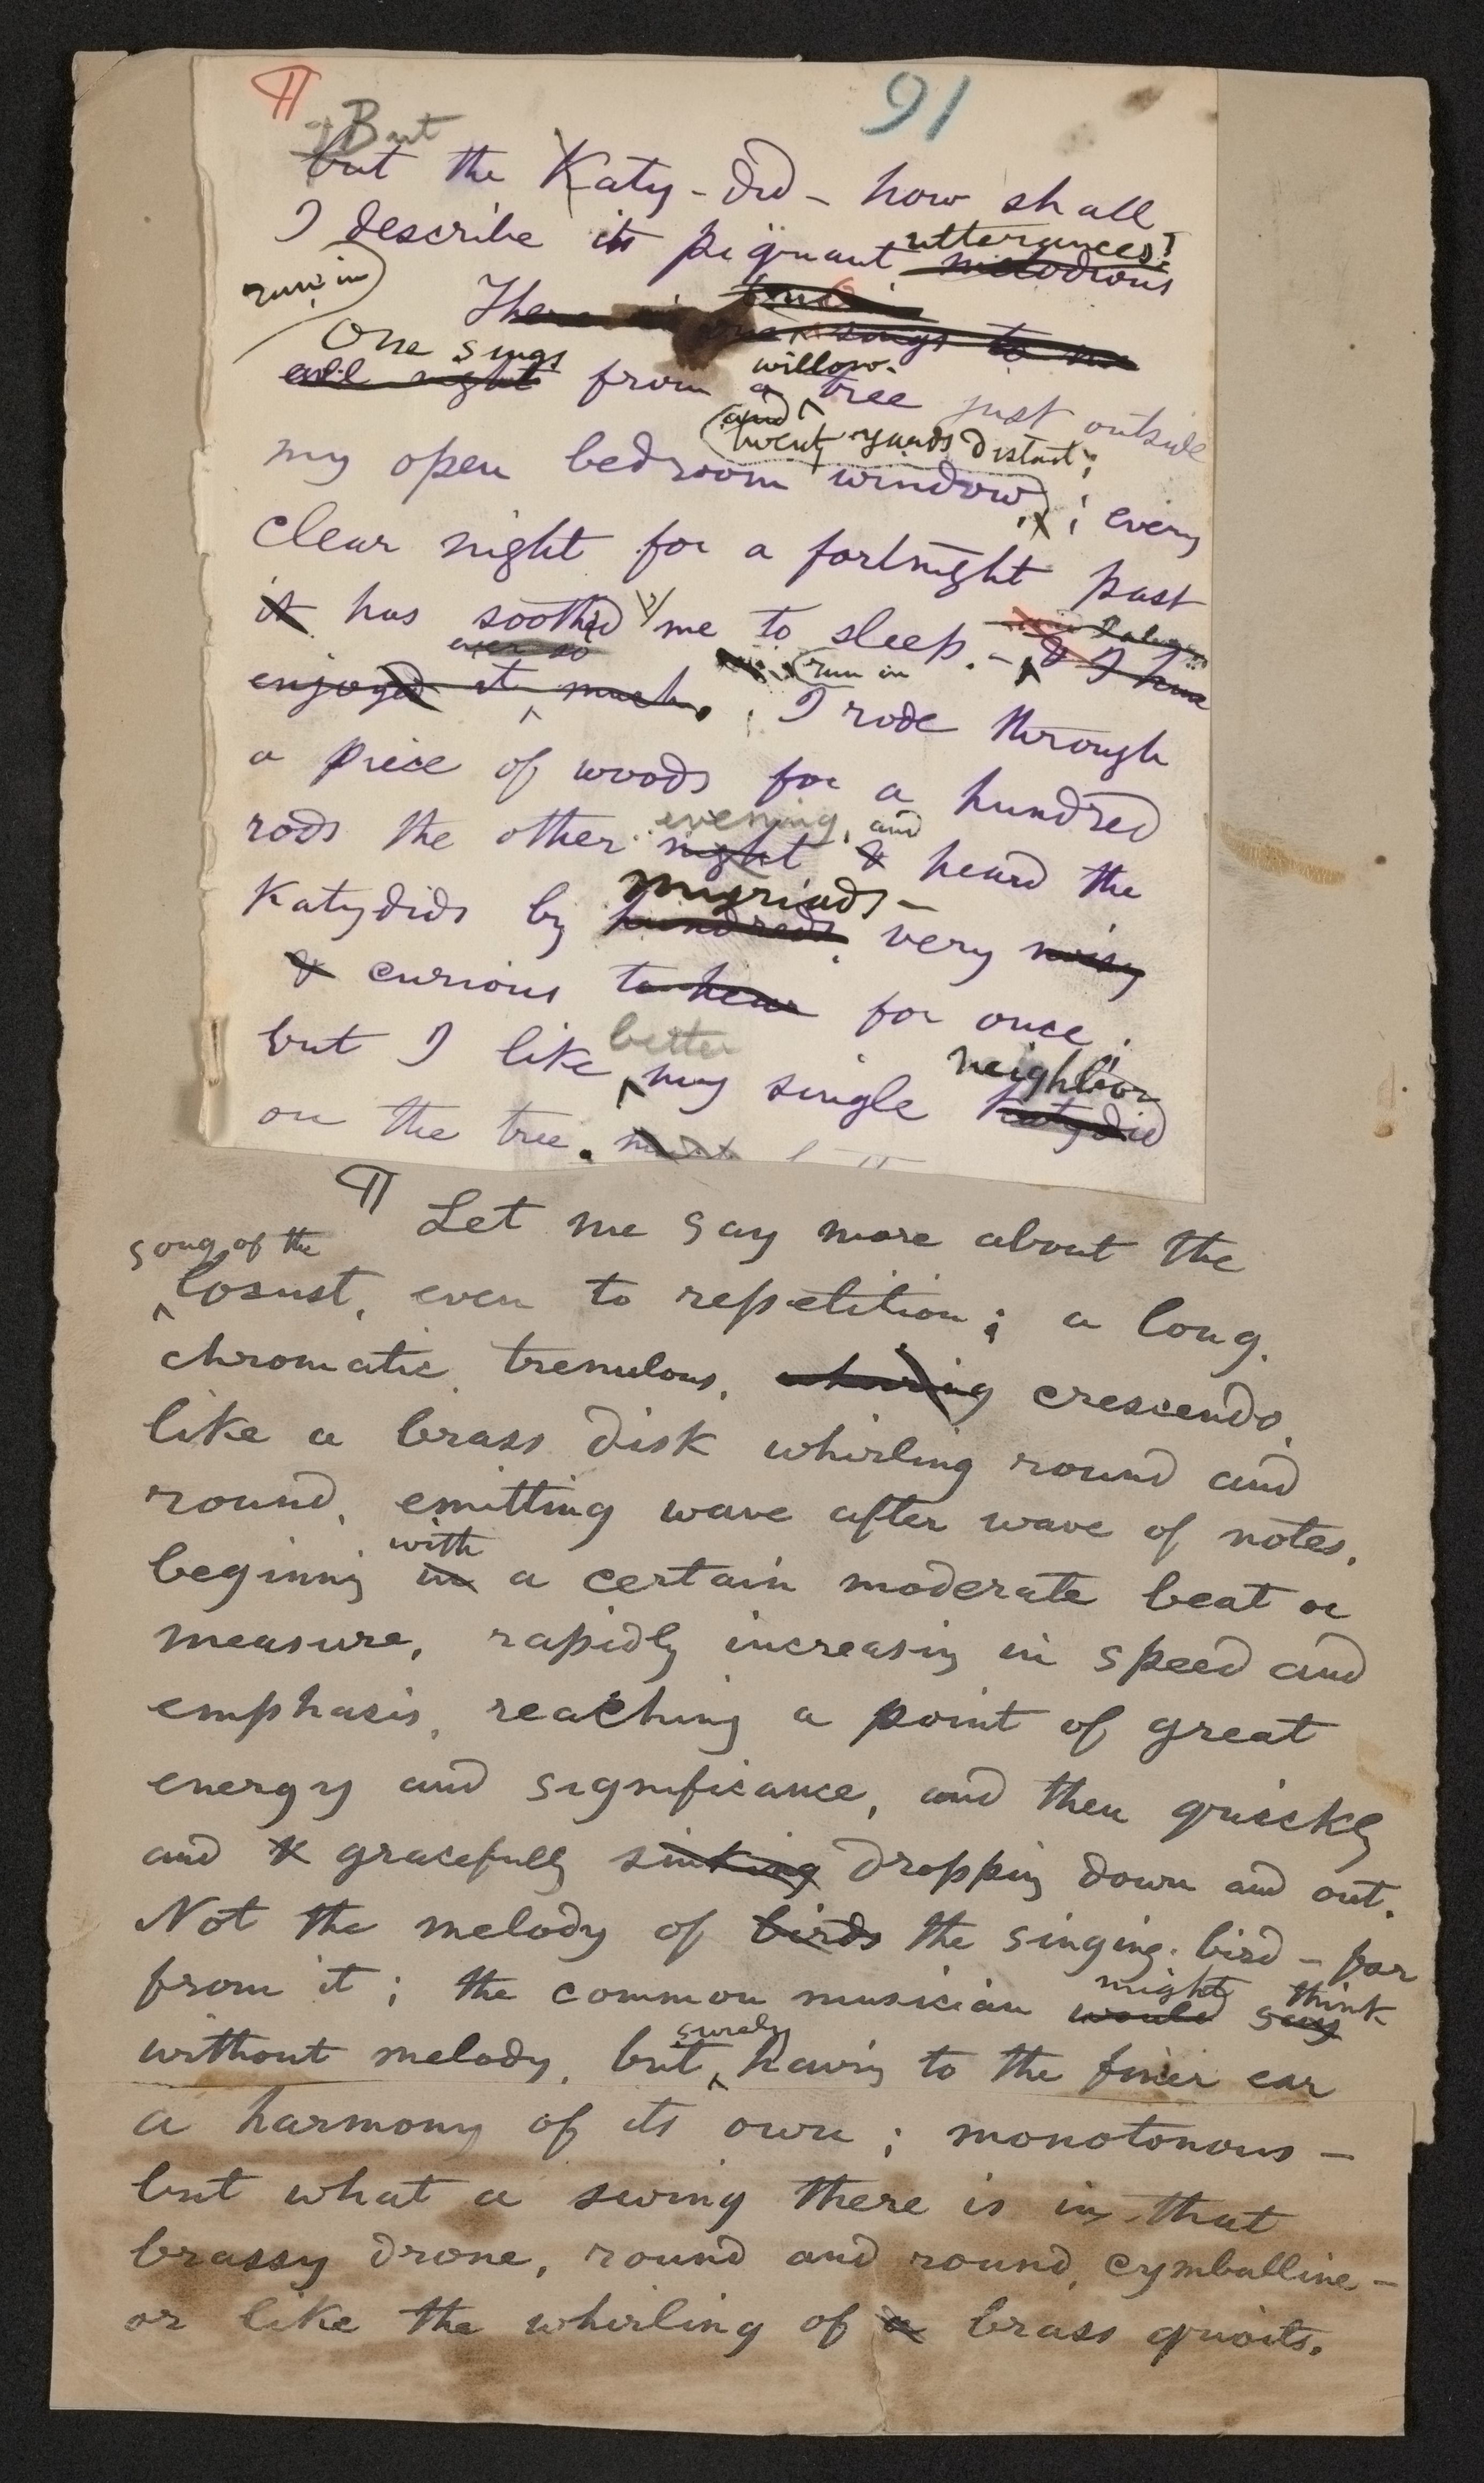 ¶ 91
But
but the Katy-did – how shall
I describe its piquant utterances?
melodious
run in
There is one sings to me
One sings willow-
all night from a tree just outside
and twenty yards distant;
my open bedroom window; every
clear night for a fortnight past
it has soothed me to sleep. – & I have
ever so run in
enjoyed it much. I rode through
a piece of woods for a hundred
evening, and
rods the other night & heard the
myriads –
Katydids by hundreds very noisy
& curious to hear for once;
better neighbor
but I like my single Katydid
on the tree.
¶ Let me say more about the
song of the
locust, even to repetition; a long,
chromatic, tremulous, whirring crescendo,
like a brass disk whirling round and
round, emitting wave after wave of notes,
with
beginning in a certain moderate beat or
measure, rapidly increasing in speed and
emphasis, reaching a point of great
energy and significance, and then quickly
and & gracefully sinking dropping down and out.
Not the melody of birds the singing-bird – far
might think
from it; the common musician would say
surely
without melody, but having to the finer ear
a harmony of its own; monotonous –
but what a swing there is in that
brassy drone, round and round, cymballine –
or like the whirling of a brass quoits.